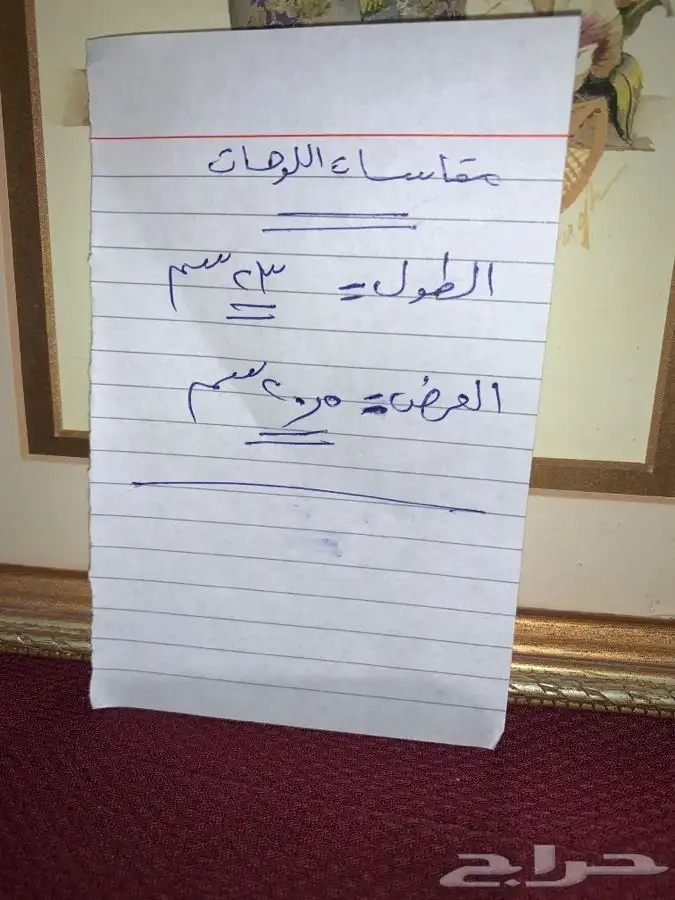 مقاسات اللوحات
الطول = ٢٣ سم
العرض = ٢٠,٥ سم
حراج